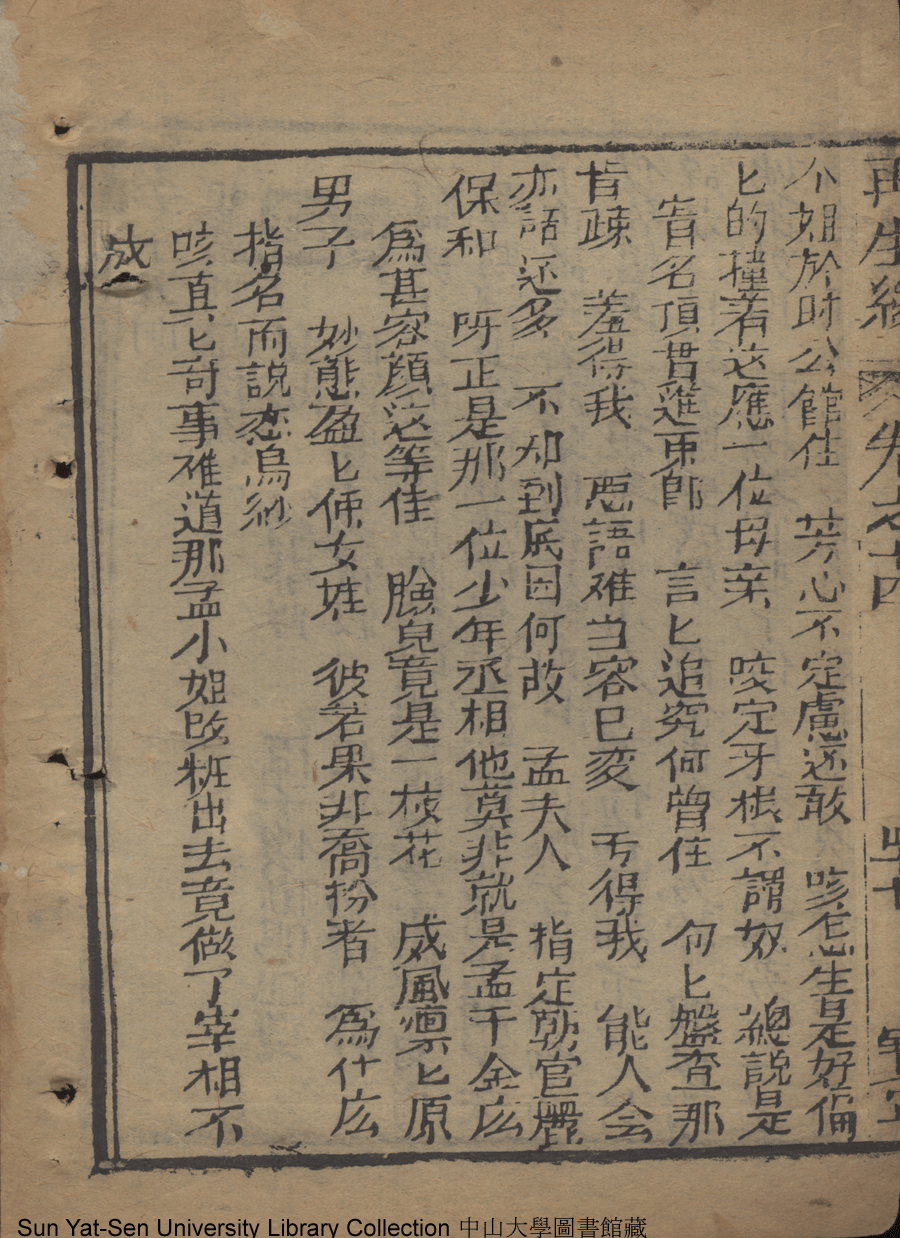 再生緣 卷之十四
小姐於時公館住 芳心不定慮还敢 咳怎生是好倫
匕的撞着这應一位母亲 咬定牙根不謂奴 總說是
盲名頂貫進東郎 言匕追究何曾住 何匕盤查那
肯疎 羞得我 悪語难当容已変 亐得我 能人会
亦話还多 不知到底因何故 孟夫人 指定勒官麗
保和 呀正是那一位少年丞相他莫非就是孟千金庅
爲甚容顏这等佳 臉皃竟是一枝花 威風凛匕原
男子 妙態盈匕便女姓 彼若果非喬扮者 爲什庅
指名而說恋烏紗
咳真匕奇事难道那孟小姐改粧出去竟做了宰相不
成
Sun Yat-Sen University Library Collection 中山大學圖書館藏